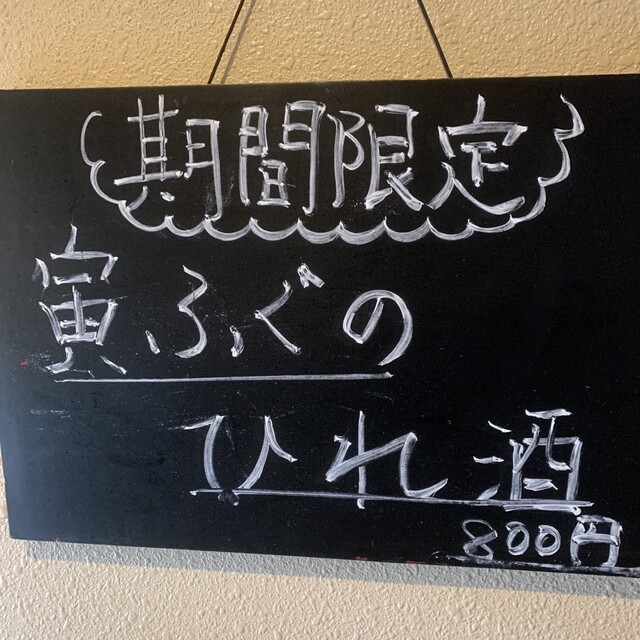 期間限定
寅ふぐの
ひれ酒
800円